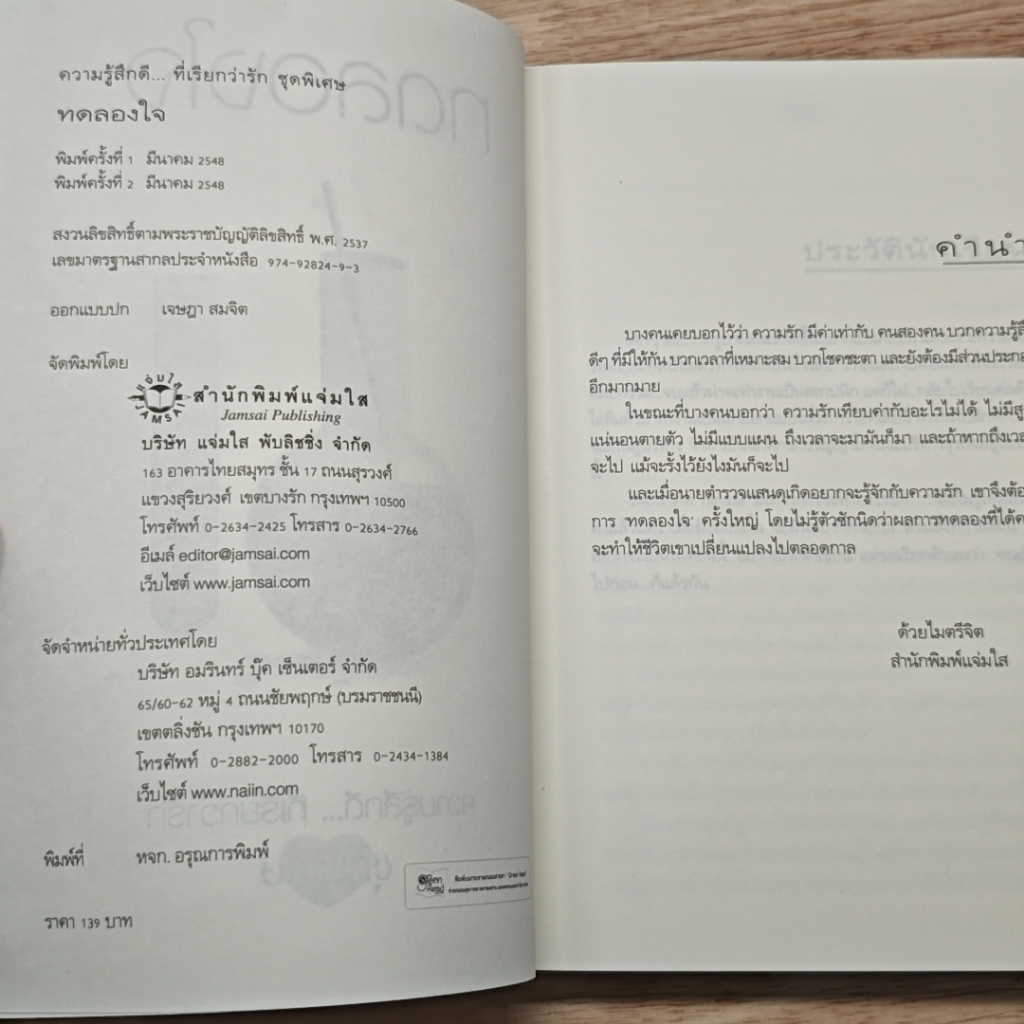 ความรู้สึกดี... ที่เรียกว่ารัก ชุดพิเศษ
ทดลองใจ
พิมพ์ครั้งที่ 1 มีนาคม 2548
พิมพ์ครั้งที่ 2 มีนาคม 2548
สงวนลิขสิทธิ์ตามพระราชบัญญัติลิขสิทธิ์ พ.ศ. 2537
เลขมาตรฐานสากลประจำหนังสือ 974-92824-9-3
ออกแบบปก เจษฎา สมจิต
จัดพิมพ์โดย
แจ่มใส
JAMSAI
สำนักพิมพ์แจ่มใส
Jamsai Publishing
บริษัท แจ่มใส พับลิชชิ่ง จำกัด
163 อาคารไทยสมุทร ชั้น 17 ถนนสุรวงศ์
แขวงสุริยวงศ์ เขตบางรัก กรุงเทพฯ 10500
โทรศัพท์ 0-2634-2425 โทรสาร 0-2634-2766
อีเมล์ editor@jamsai.com
เว็บไซต์ www.jamsai.com
จัดจำหน่ายทั่วประเทศโดย
บริษัท อมรินทร์ บุ๊ค เซ็นเตอร์ จำกัด
65/60-62 หมู่ 4 ถนนชัยพฤกษ์ (บรมราชชนนี)
เขตตลิ่งชัน กรุงเทพฯ 10170
โทรศัพท์ 0-2882-2000 โทรสาร 0-2434-1384
เว็บไซต์ www.naiin.com
พิมพ์ที่ หจก. อรุณการพิมพ์
Green Read
ราคา 139 บาท
คำนำ
บางคนเคยบอกไว้ว่า ความรัก มีค่าเท่ากับ คนสองคน บวกความรู้สึ
ดีๆ ที่มีให้กัน บวกเวลาที่เหมาะสม บวกโชคชะตา และยังต้องมีส่วนประกอ
อีกมากมาย
ในขณะที่บางคนบอกว่า ความรักเทียบค่ากับอะไรไม่ได้ ไม่มีสู
แน่นอนตายตัว ไม่มีแบบแผน ถึงเวลาจะมามันก็มา และถ้าหากถึงเวล
จะไป แม้จะรั้งไว้ยังไงมันก็จะไป
และเมื่อนายตำรวจแสนดุเกิดอยากจะรู้จักกับความรัก เขาจึงต้อ
การ 'ทดลองใจ' ครั้งใหญ่ โดยไม่รู้ตัวซักนิดว่าผลการทดลองที่ได้ค
จะทำให้ชีวิตเขาเปลี่ยนแปลงไปตลอดกาล
ด้วยไมตรีจิต
สำนักพิมพ์แจ่มใส